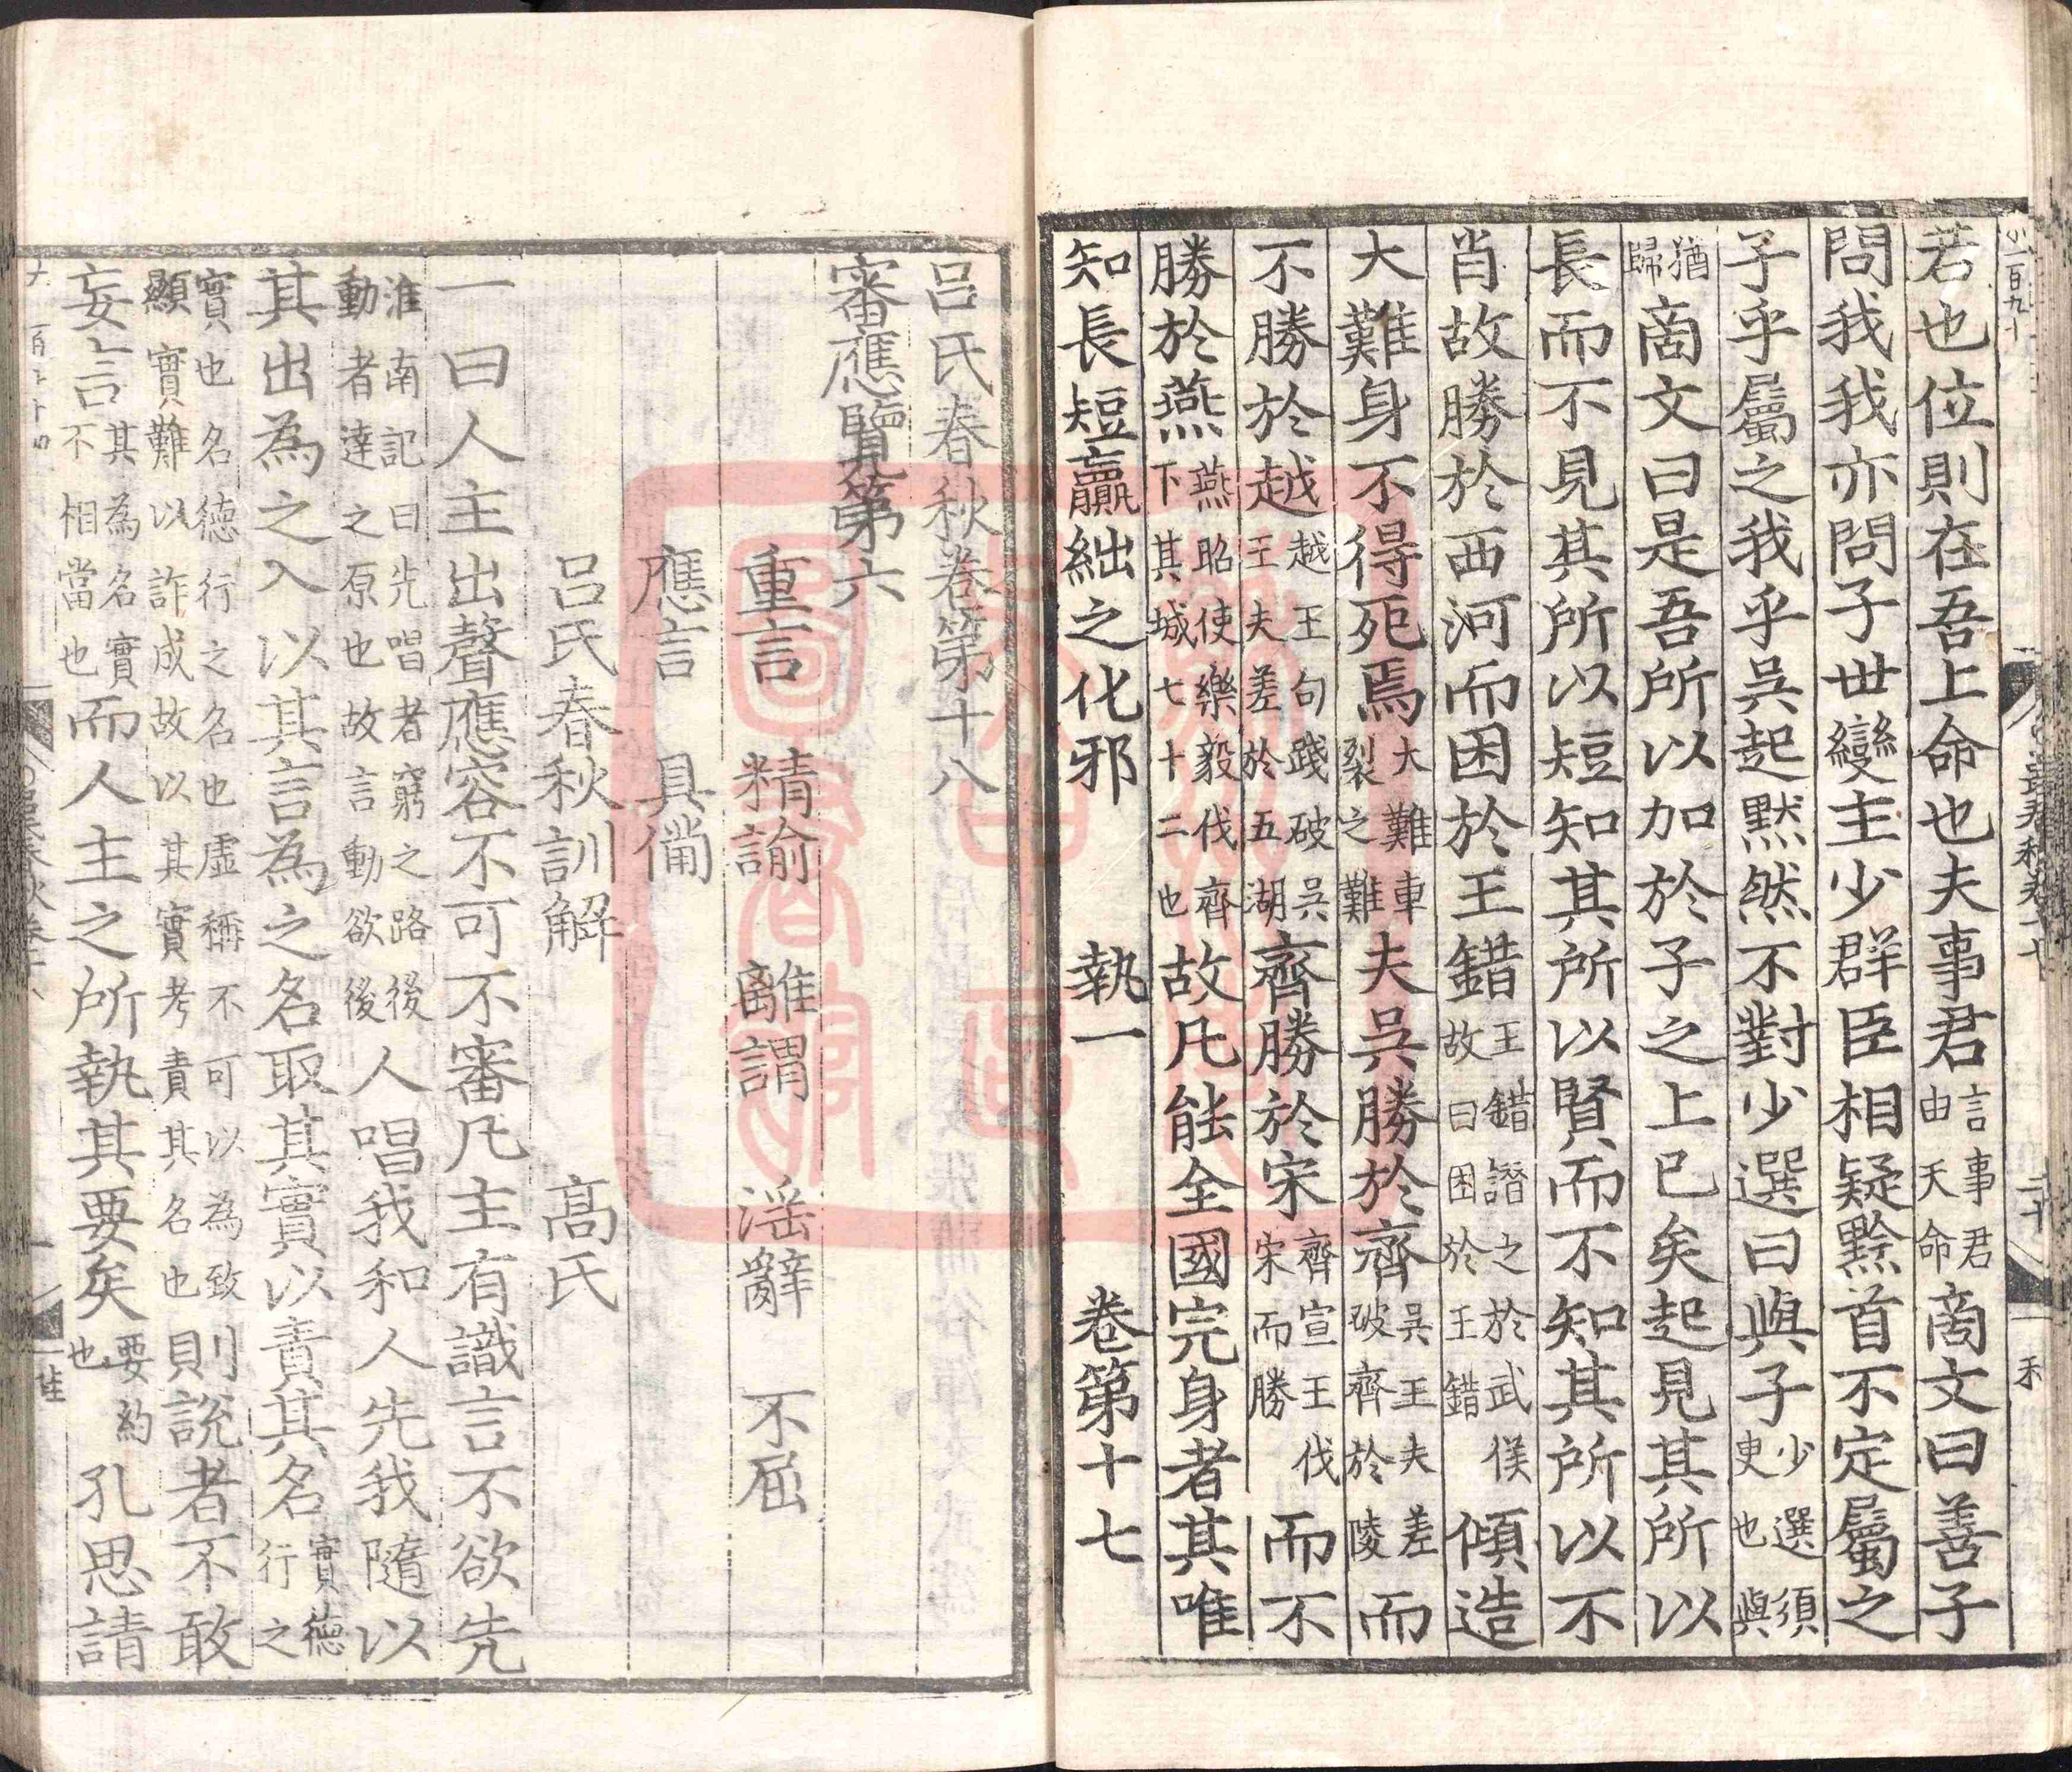 若也位則在吾上命也夫事君言事君由天命商文曰善子
問我我亦問子世變主少群臣相疑黔首不定屬之
子乎屬之我乎吳起默然不對少選曰與子少選須臾也與
猶歸商文曰是吾所以加於子之上已矣起見其所以
長而不見其所以短知其所以賢而不知其所以不
肖故勝於西河而困於王錯王錯譖之於武侯故曰困於王錯傾造
大難身不得死焉大難車裂之難夫吳勝於齊吳王夫差破齊於陵而
不勝於越越王句踐破吳王夫差於五湖齊勝於宋齊宣王伐宋而勝而不
勝於燕燕昭使樂毅伐齊下其城七十二也故凡能全國完身者其唯
知長短贏絀之化邪 執一 卷第十七
呂氏春秋卷第十八
審應覽第六
重言 精諭 離謂 淫辭 不屈
應言 具備
呂氏春秋訓解 高氏
一曰人主出聲應容不可不審凡主有識言不欲先
淮南記曰先唱者窮之路後動者達之原也故言動欲後人唱我和人先我隨以
其出為之入以其言為之名取其實以責其名實德行之
實也名德行之名也虛稱不可以為致顯實難以詐成故以其實考責其名也則說者不敢
妄言其為名實不相當也而人主之所執其要矣要約也孔思請